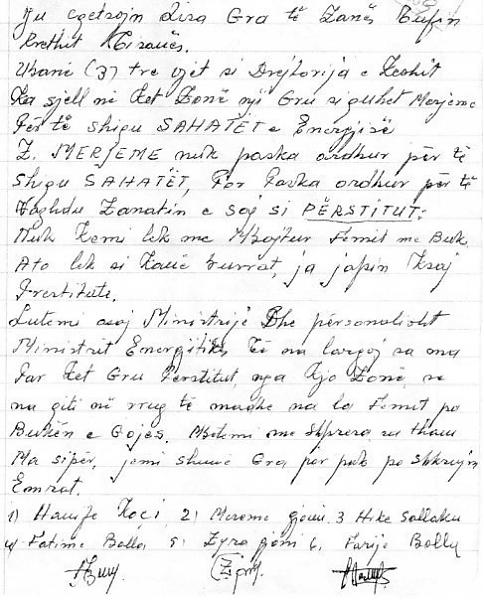 Ju
Gra të Zonës Bufin
Rrethit Tiranës.
U banë (3) tre vjet si Drejtorija e
Ka sjell në Ket Zonë një Gru si quhet Merjeme
Për të shiqu SAHATËT e Energjisë
Z. MERJEME nuk paska ardhur për të
Shiqu SAHATËT, Por Paska ardhur për të
Zanatin e saj si PËRSTITUT:
Nuk Kemi lek me Mbajtur Femit me Buk.
Ato lek si Kanë burrat, ja japin Ksaj
Prestitute.
Lutemi asaj Ministrije Dhe përsonalisht
Ministrit Energjitikës të na largoj sa ma
Par Ket Gru Perstitut nga Kjo Zonë, se
na qiti në rrug të madhe na la Femit pa
Bukën e Gojes. Mbetemi me Shpresa sa tham
Ma sipër, jemi shumë Gra por pak po shkruejm
Emrat.
1) Hanife Koçi 2) Mereme gjoni 3 Hike Sallaku
4) Fatime Balla, 5) Zyra gjoni 6, Farije Balla